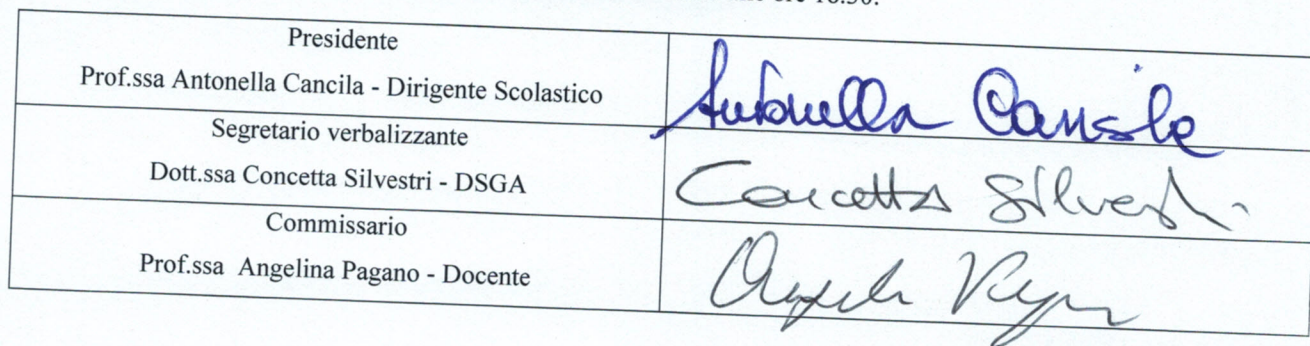 18.30.
Presidente
Prof.ssa Antonella Cancila - Dirigente Scolastico
Antonella Cancila
Segretario verbalizzante
Dott.ssa Concetta Silvestri - DSGA
Concetta Silvestri
Commissario
Prof.ssa Angelina Pagano - Docente